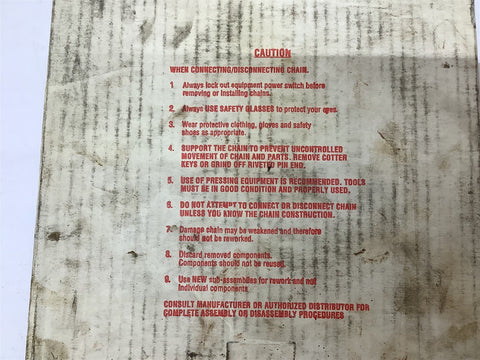 CAUTION
WHEN CONNECTING/DISCONNECTING CHAIN.
1 Always lock out equipment power switch before
removing or installing chains.
2. Always USE SAFETY GLASSES to protect your eyes.
3. Wear protective clothing, gloves and safety
shoes as appropriate.
4. SUPPORT THE CHAIN TO PREVENT UNCONTROLLED
MOVEMENT OF CHAIN AND PARTS. REMOVE COTTER
KEYS OR GRIND OFF RIVETED PIN END.
5. USE OF PRESSING EQUIPMENT IS RECOMMENDED. TOOLS
MUST BE IN GOOD CONDITION AND PROPERLY USED.
6. DO NOT ATTEMPT TO CONNECT OR DISCONNECT CHAIN
UNLESS YOU KNOW THE CHAIN CONSTRUCTION.
7. Damage chain may be weakened and therefore
should not be reworked.
8. Discard removed components.
Components should not be reused.
9. Use NEW sub-assemblies for rework and not
individual components
CONSULT MANUFACTURER OR AUTHORIZED DISTRIBUTOR FOR
COMPLETE ASSEMBLY OR DISASSEMBLY PROCEDURES